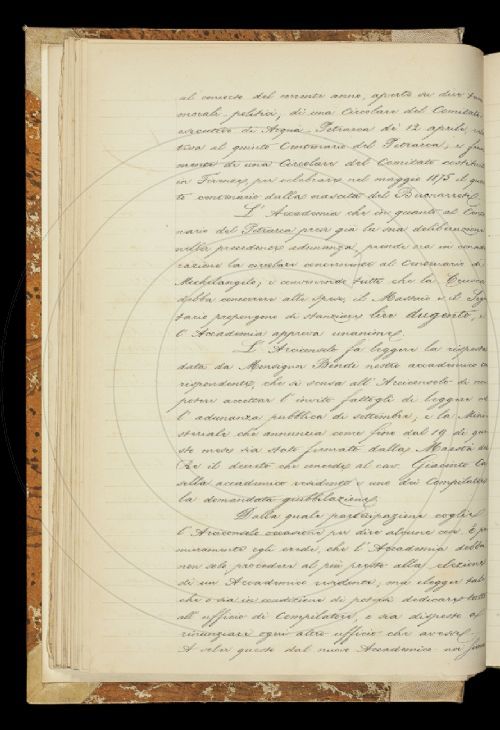 al concorso del corrente anno, aperto su due temi
morali politici, di una Circolare del Comitato
esecutivo di Arquà Petrarca de' 12 aprile, rela
tiva al quinto Centenario del Petrarca, e
di una Circolare del Comitato costituito
in Firenze, per celebrare nel maggio 1875 il quar
to centenario dalla nascita del Buonarroti.
L'Accademia che in quanto al Cente
nario del Petrarca prese già la sua deliberazione
nella precedente adunanza, prende ora in conside
razione la circolare concernente al Centenario di
Michelangelo; e convenendo tutti che la Crusca
debba concorrere alle spese, il Massaio e il Segre
tario propongono di stanziare lire dugento, e
l'Accademia approva unanime.
L'Arciconsolo fa leggere la risposta
data da Monsignor Bindi nostro accademico cor
rispondente, che si scusa all'Arciconsolo di non
poter accettar l'invito fattogli di leggere
l'adunanza pubblica di settembre; e la Mini
steriale che annunzia come fino dal 19 di que
sto mese sia stato firmato dalla Maestà del
Re il decreto che concede al cav. Giacinto Ca
sella accademico residente e uno dei Compilatori
la domandata giubbilazione.
Dalla quale partecipazione coglie
l'Arciconsolo occasione per dire alcune cose. E pri
mieramente egli crede, che l'Accademia debba
non solo procedere al più presto alla elezione
di un Accademico residente, ma elegger tale
che o sia in condizione di potersi dedicare tutto
all'ufficio di Compilatore, o sia disposto a
rinunziare ogni altro ufficio che avesse.
A voler questo dal nuovo Accademico noi